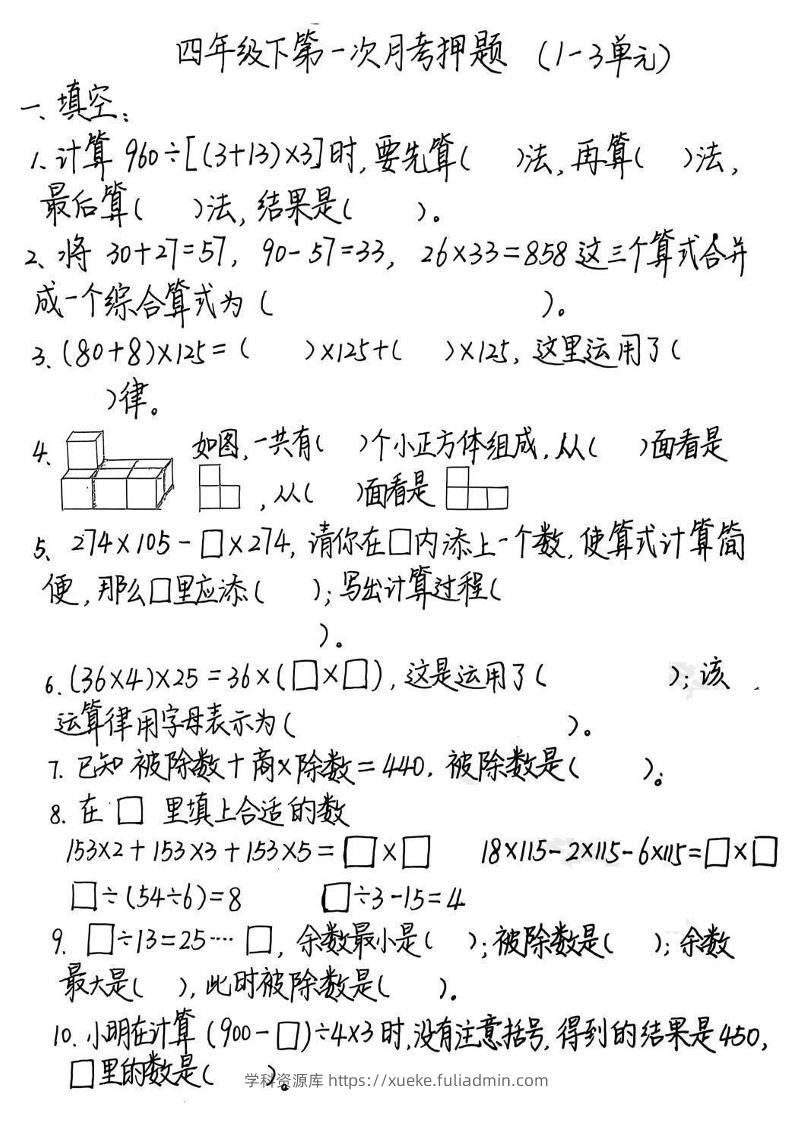 四年级下第一次月考押题 (1-3单元)
一、填空:
1、计算 960÷[(3+13)×3]时,要先算( )法,再算( )法,
最后算( )法,结果是( )。
2、将 30+27=57, 90-57=33, 26×33=858 这三个算式合并
成一个综合算式为( )。
3、(80+8)×125=( )×125+( )×125,这里运用了(
)律。
4、如图,一共有( )个小正方体组成,从( )面看是
,从( )面看是
5、274×105-□×274,请你在□内添上一个数,使算式计算简
便,那么□里应添( );写出计算过程(
)。
6、(36×4)×25=36×(□×□),这是运用了( );该
运算律用字母表示为( )。
7. 已知 被除数+商×除数=440,被除数是( )。
8. 在 □ 里填上合适的数
153×2+153×3+153×5=□×□ 18×115-2×115-6×115=□×□
□÷(54÷6)=8 □÷3-15=4
9. □÷13=25····□,余数最小是( );被除数是( );余数
最大是( ),此时被除数是( )。
10. 小明在计算(900-□)÷4×3时,没有注意括号,得到的结果是450,
□里的数是( )。
学科资源库 https://xueke.fuliadmin.com